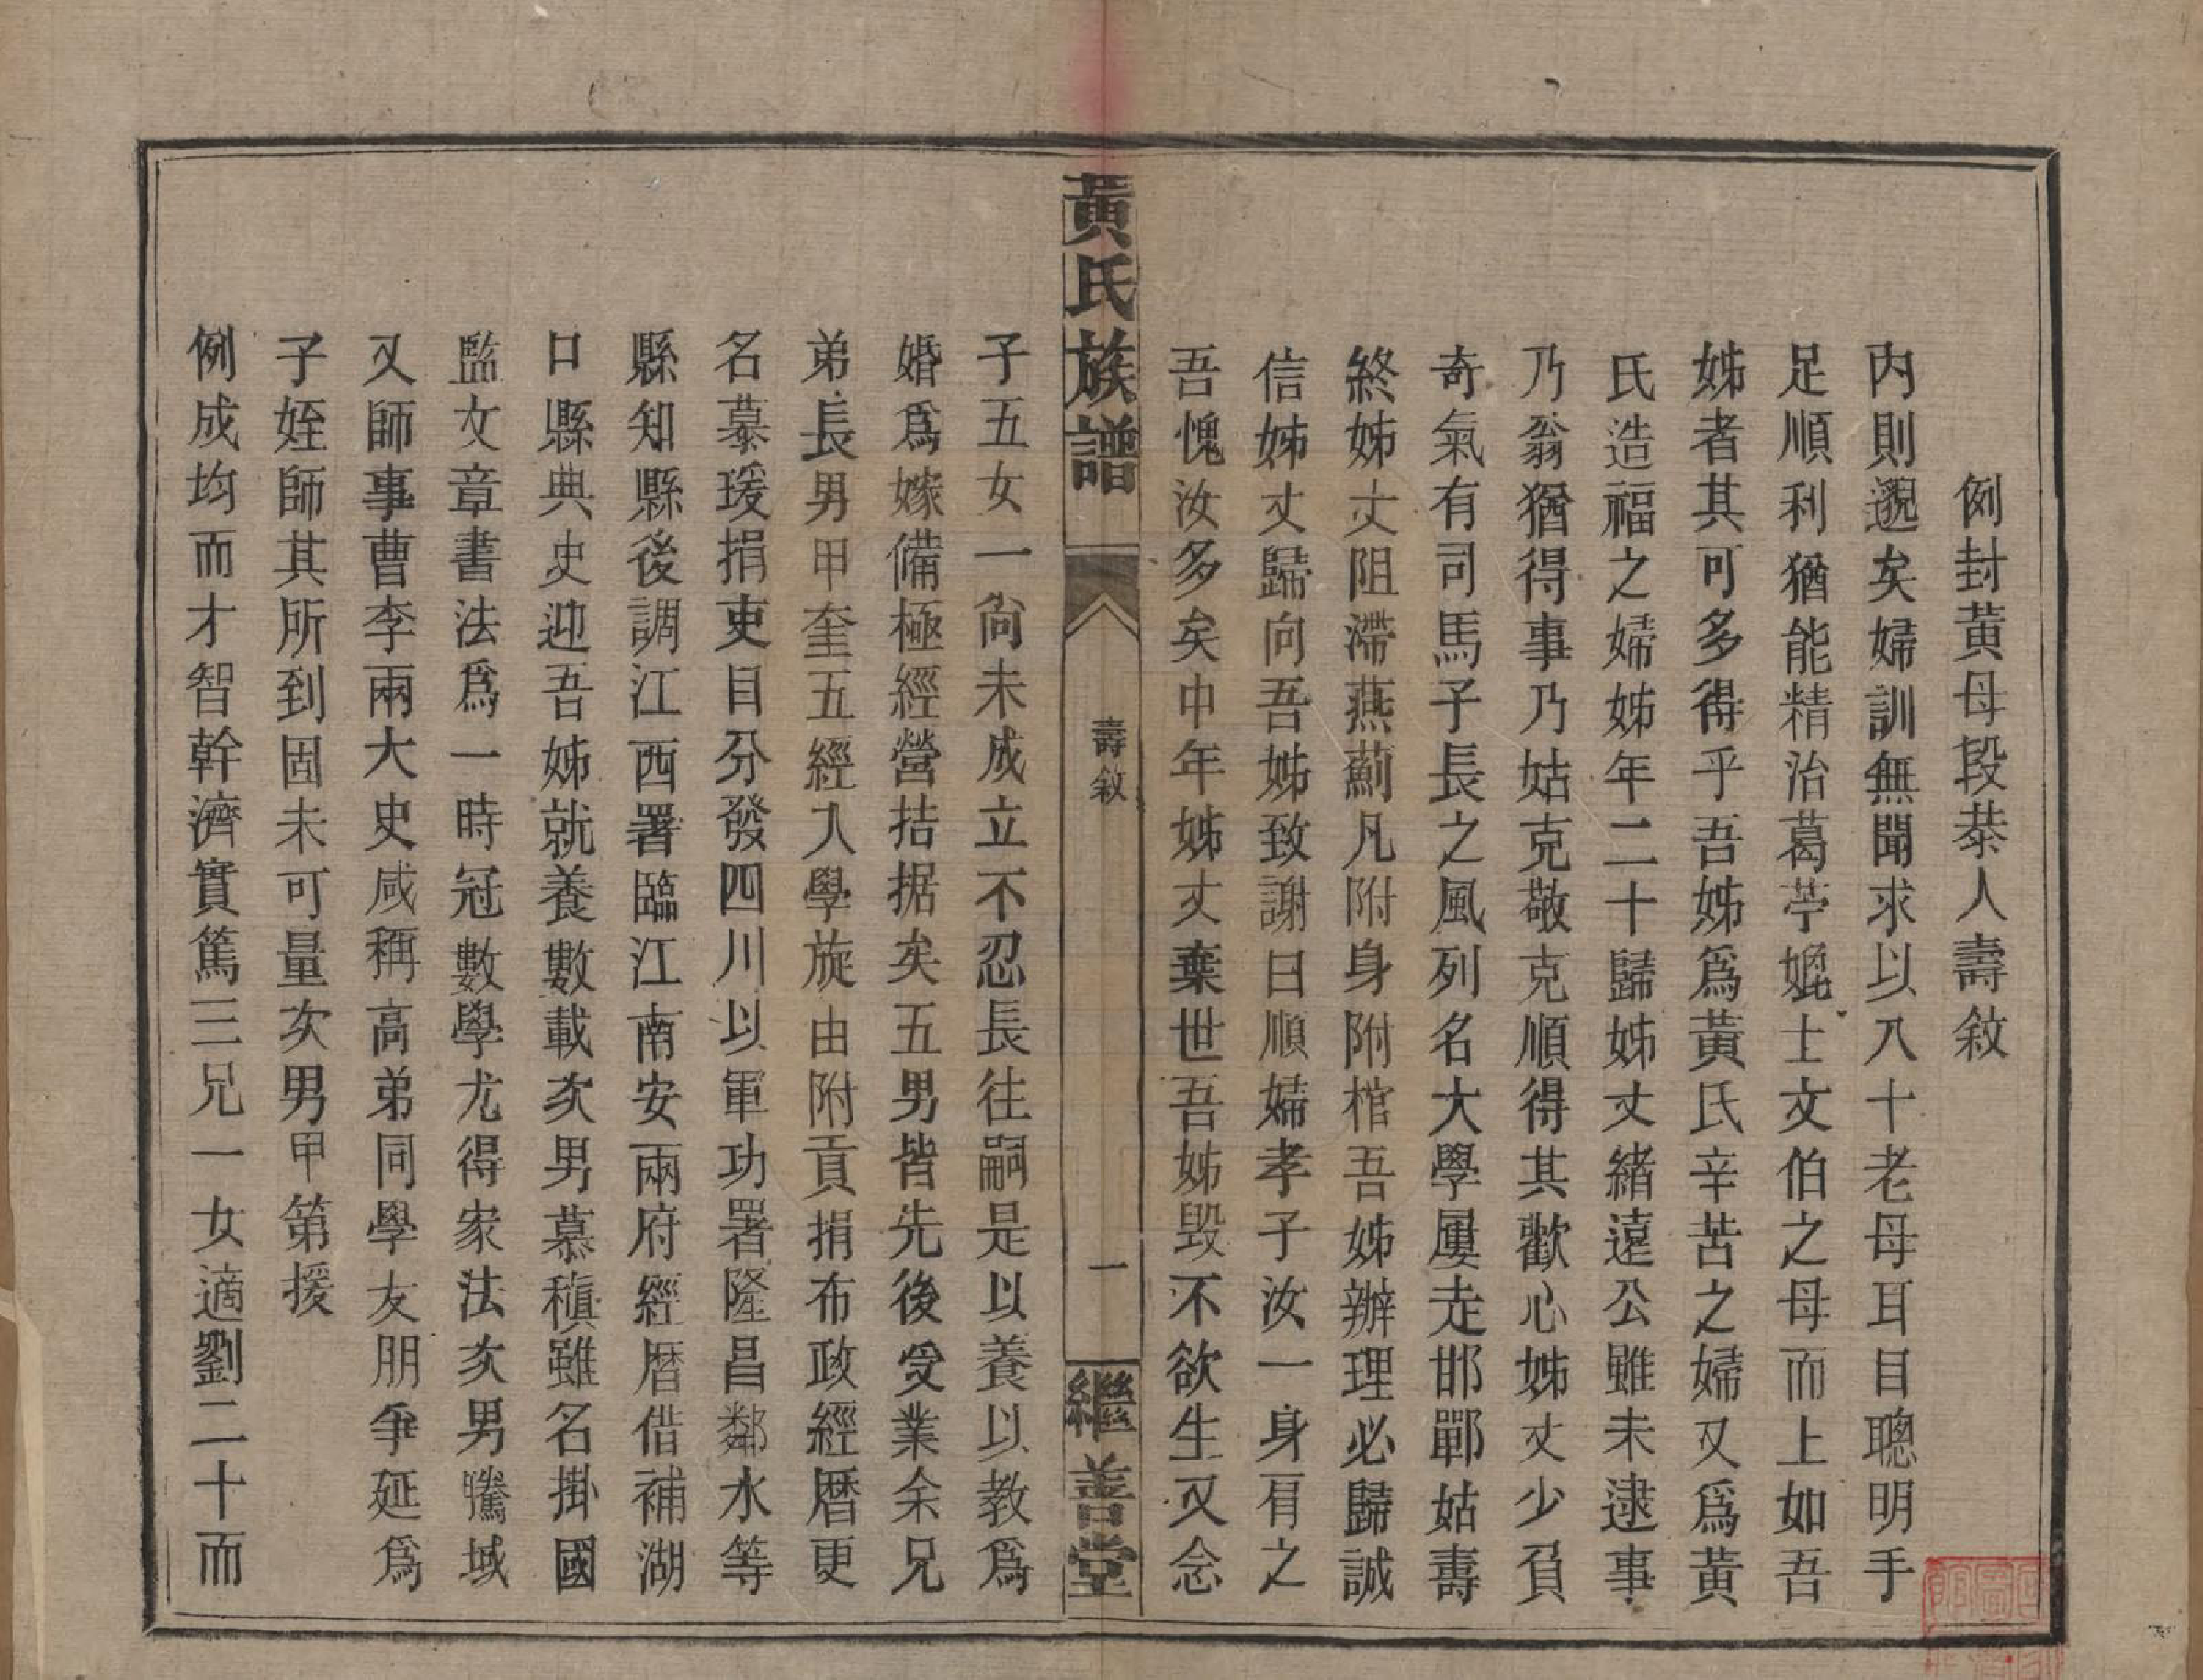 例封黄母段恭人壽敘
內則邈矣婦訓無聞求以八十老母耳目聰明手
足順利猶能精治葛苧媲士文伯之母而上如吾
姊者其可多得乎吾姊爲黃氏辛苦之婦又爲黃
氏造福之婦姊年二十歸姊丈緒遠公雖未逮事
乃翁猶得事乃姑克敬克順得其歡心姊丈少負
奇氣有司馬子長之風列名大學屢走邯鄲姑壽
終姊丈阻滯燕薊凡附身附棺吾姊辦理必歸誠
信姊丈歸向吾姊致謝曰順婦孝子汝一身有之
吾愧汝多矣中年姊丈棄世吾姊毀不欲生又念
黃氏族譜
壽敘
一
繼善堂
子五女一尙未成立不忍長往嗣是以養以教爲
婚爲嫁備極經營拮据矣五男皆先後受業余兄
弟長男甲奎五經入學旋由附貢捐布政經曆更
名慕瑗捐吏目分發四川以軍功署隆昌鄰水等
縣知縣後調江西署臨江南安兩府經曆借補湖
口縣典史迎吾姊就養數載次男慕稹雖名掛國
監文章書法爲一時冠數學尤得家法次男騰域
又師事曹李兩大史咸稱高弟同學友朋爭延爲
子姪師其所到固未可量次男甲第援
例成均而才智幹濟實篤三兄一女適劉二十而